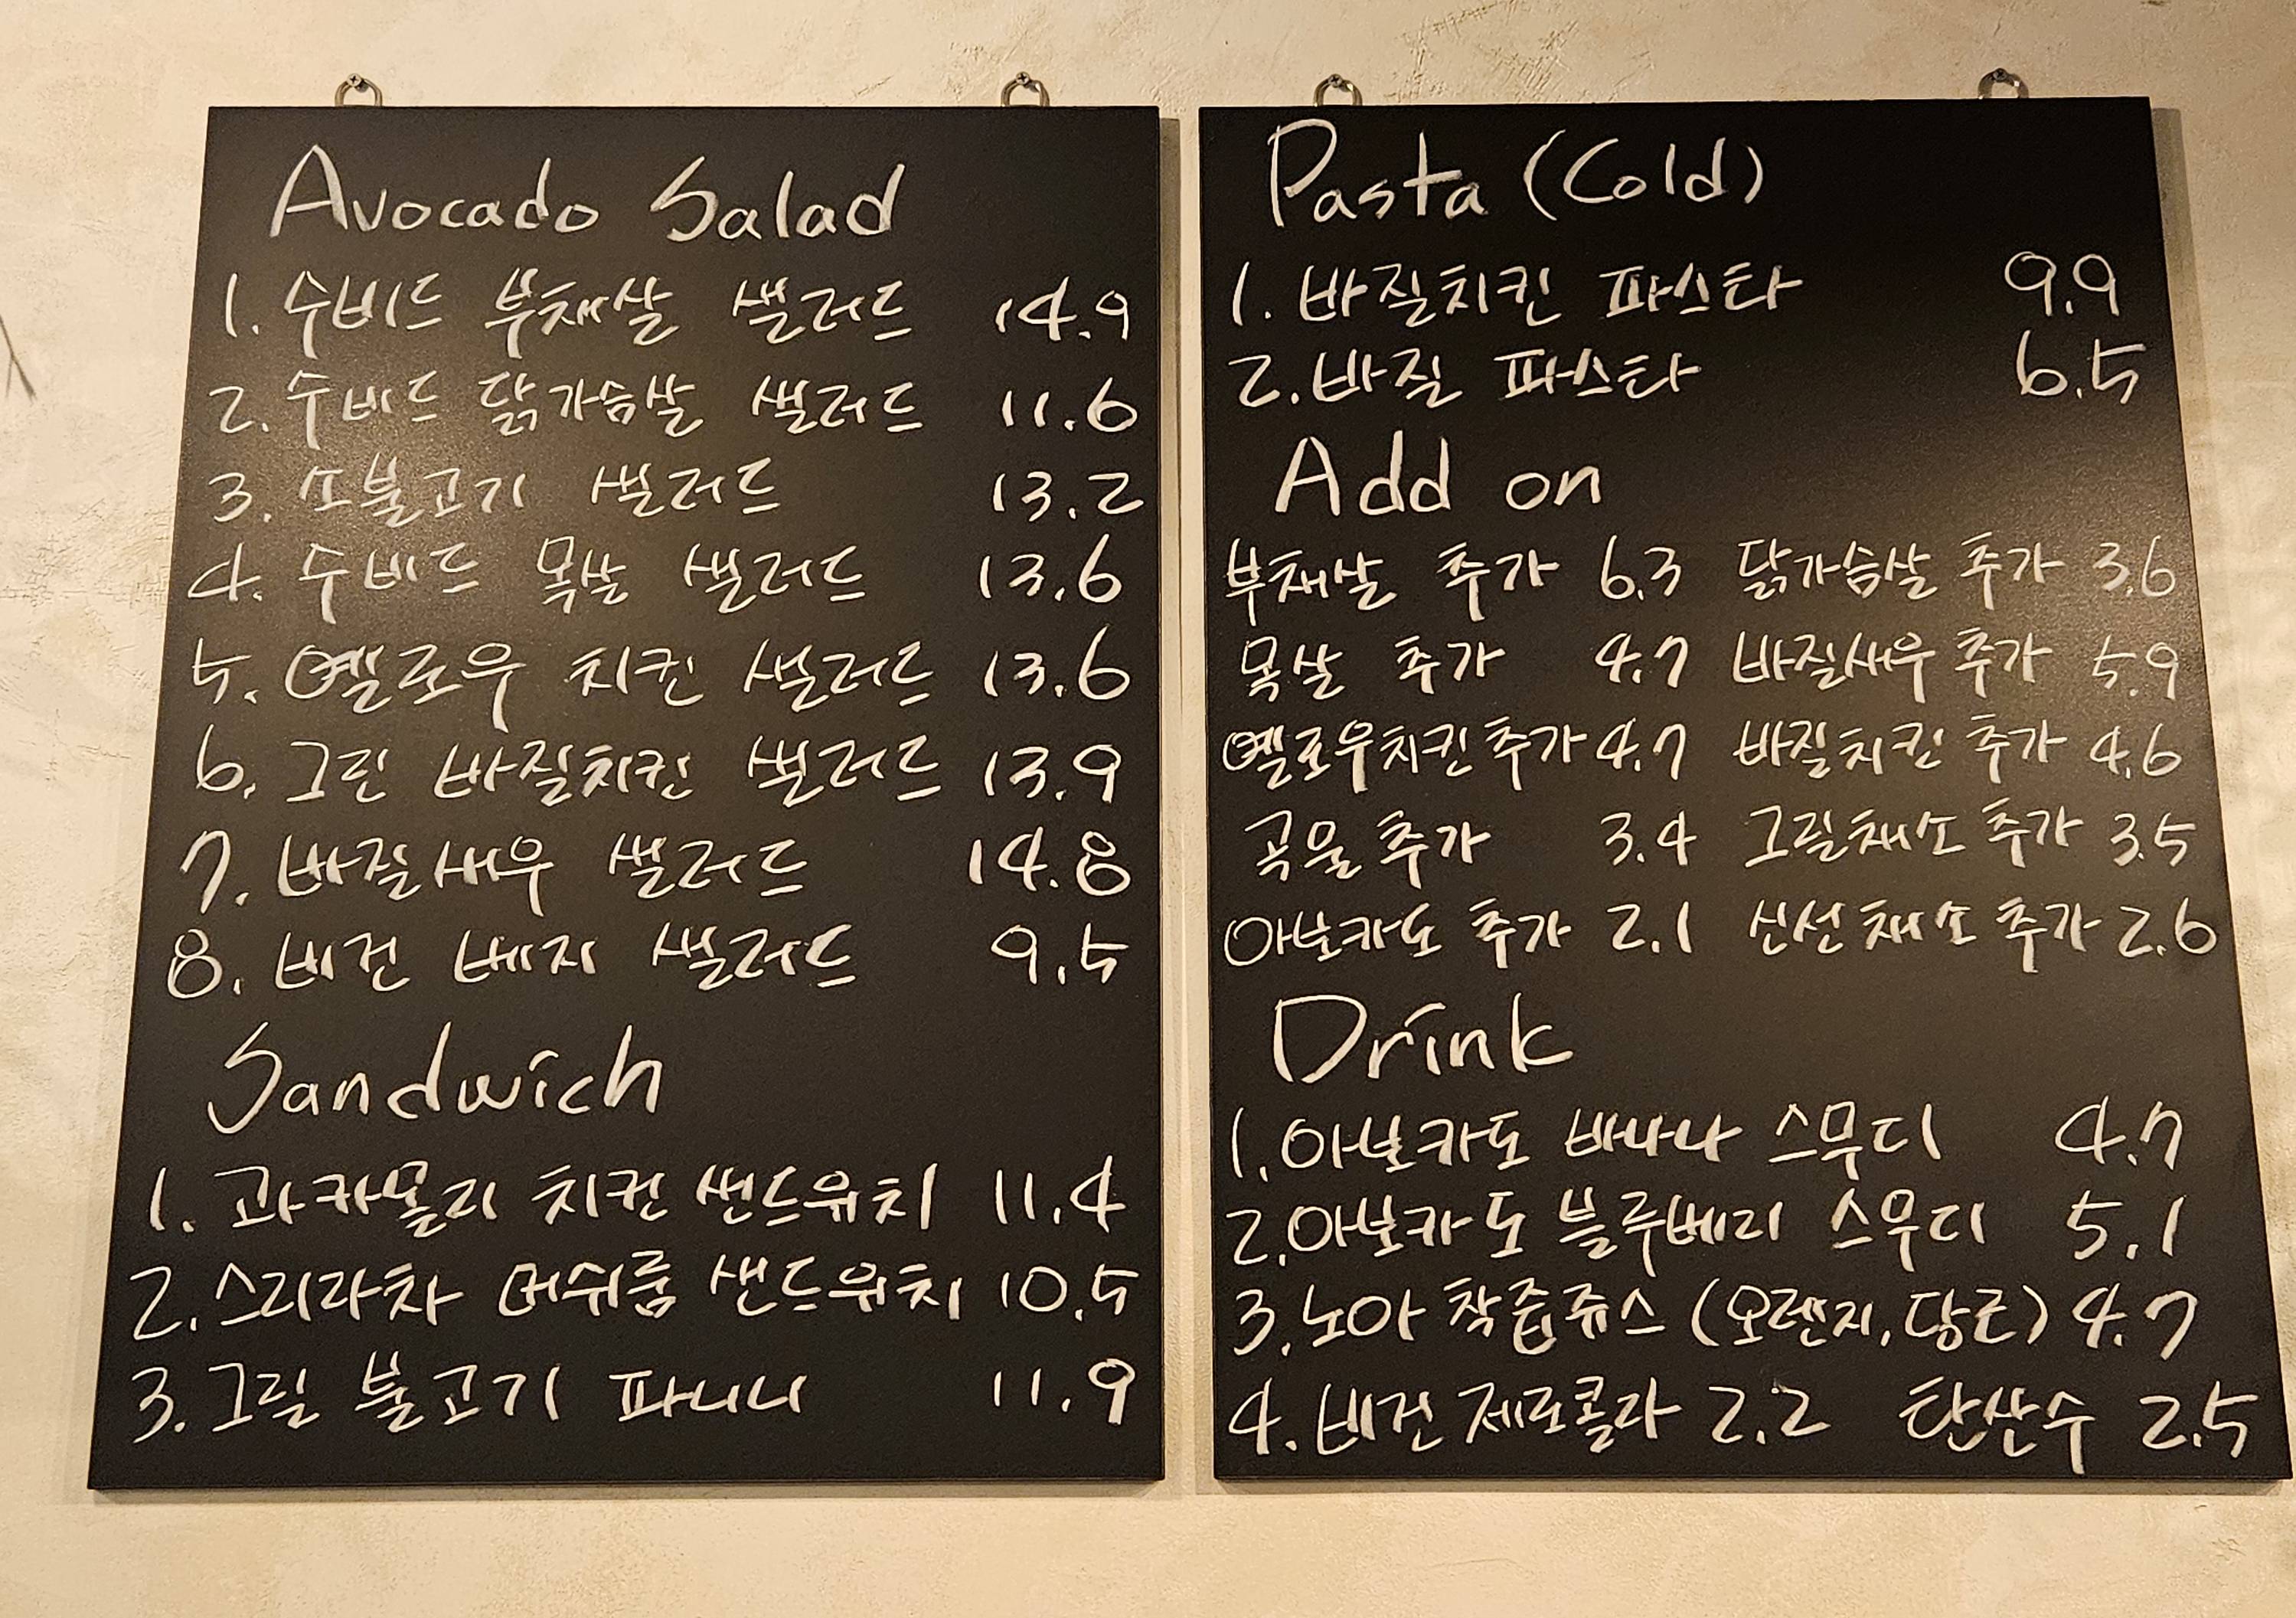 Avocado Salad
1. 수비드 부채살 샐러드 14.9
2. 수비드 닭가슴살 샐러드 11.6
3. 소불고기 샐러드 13.2
4. 수비드 목살 샐러드 13.6
5. 옐로우 치킨 샐러드 13.6
6. 그린 바질치킨 샐러드 13.9
7. 바질새우 샐러드 14.8
8. 비건 베지 샐러드 9.5
Sandwich
1. 과카몰리 치킨 샌드위치 11.4
2. 스리라차 머쉬룸 샌드위치 10.5
3. 그릴 불고기 파니니 11.9
Pasta (Cold)
1. 바질치킨 파스타 9.9
2. 바질 파스타 6.5
Add on
부채살 추가 6.3 닭가슴살 추가 3.6
목살 추가 4.7 바질새우 추가 5.9
옐로우치킨 추가 4.7 바질치킨 추가 4.6
곡물 추가 3.4 그릴채소 추가 3.5
아보카도 추가 2.1 신선채소 추가 2.6
Drink
1. 아보카도 바나나 스무디 4.7
2. 아보카도 블루베리 스무디 5.1
3. 노아 착즙쥬스 (오렌지, 당근) 4.7
4. 비건 제로콜라 2.2 탄산수 2.5